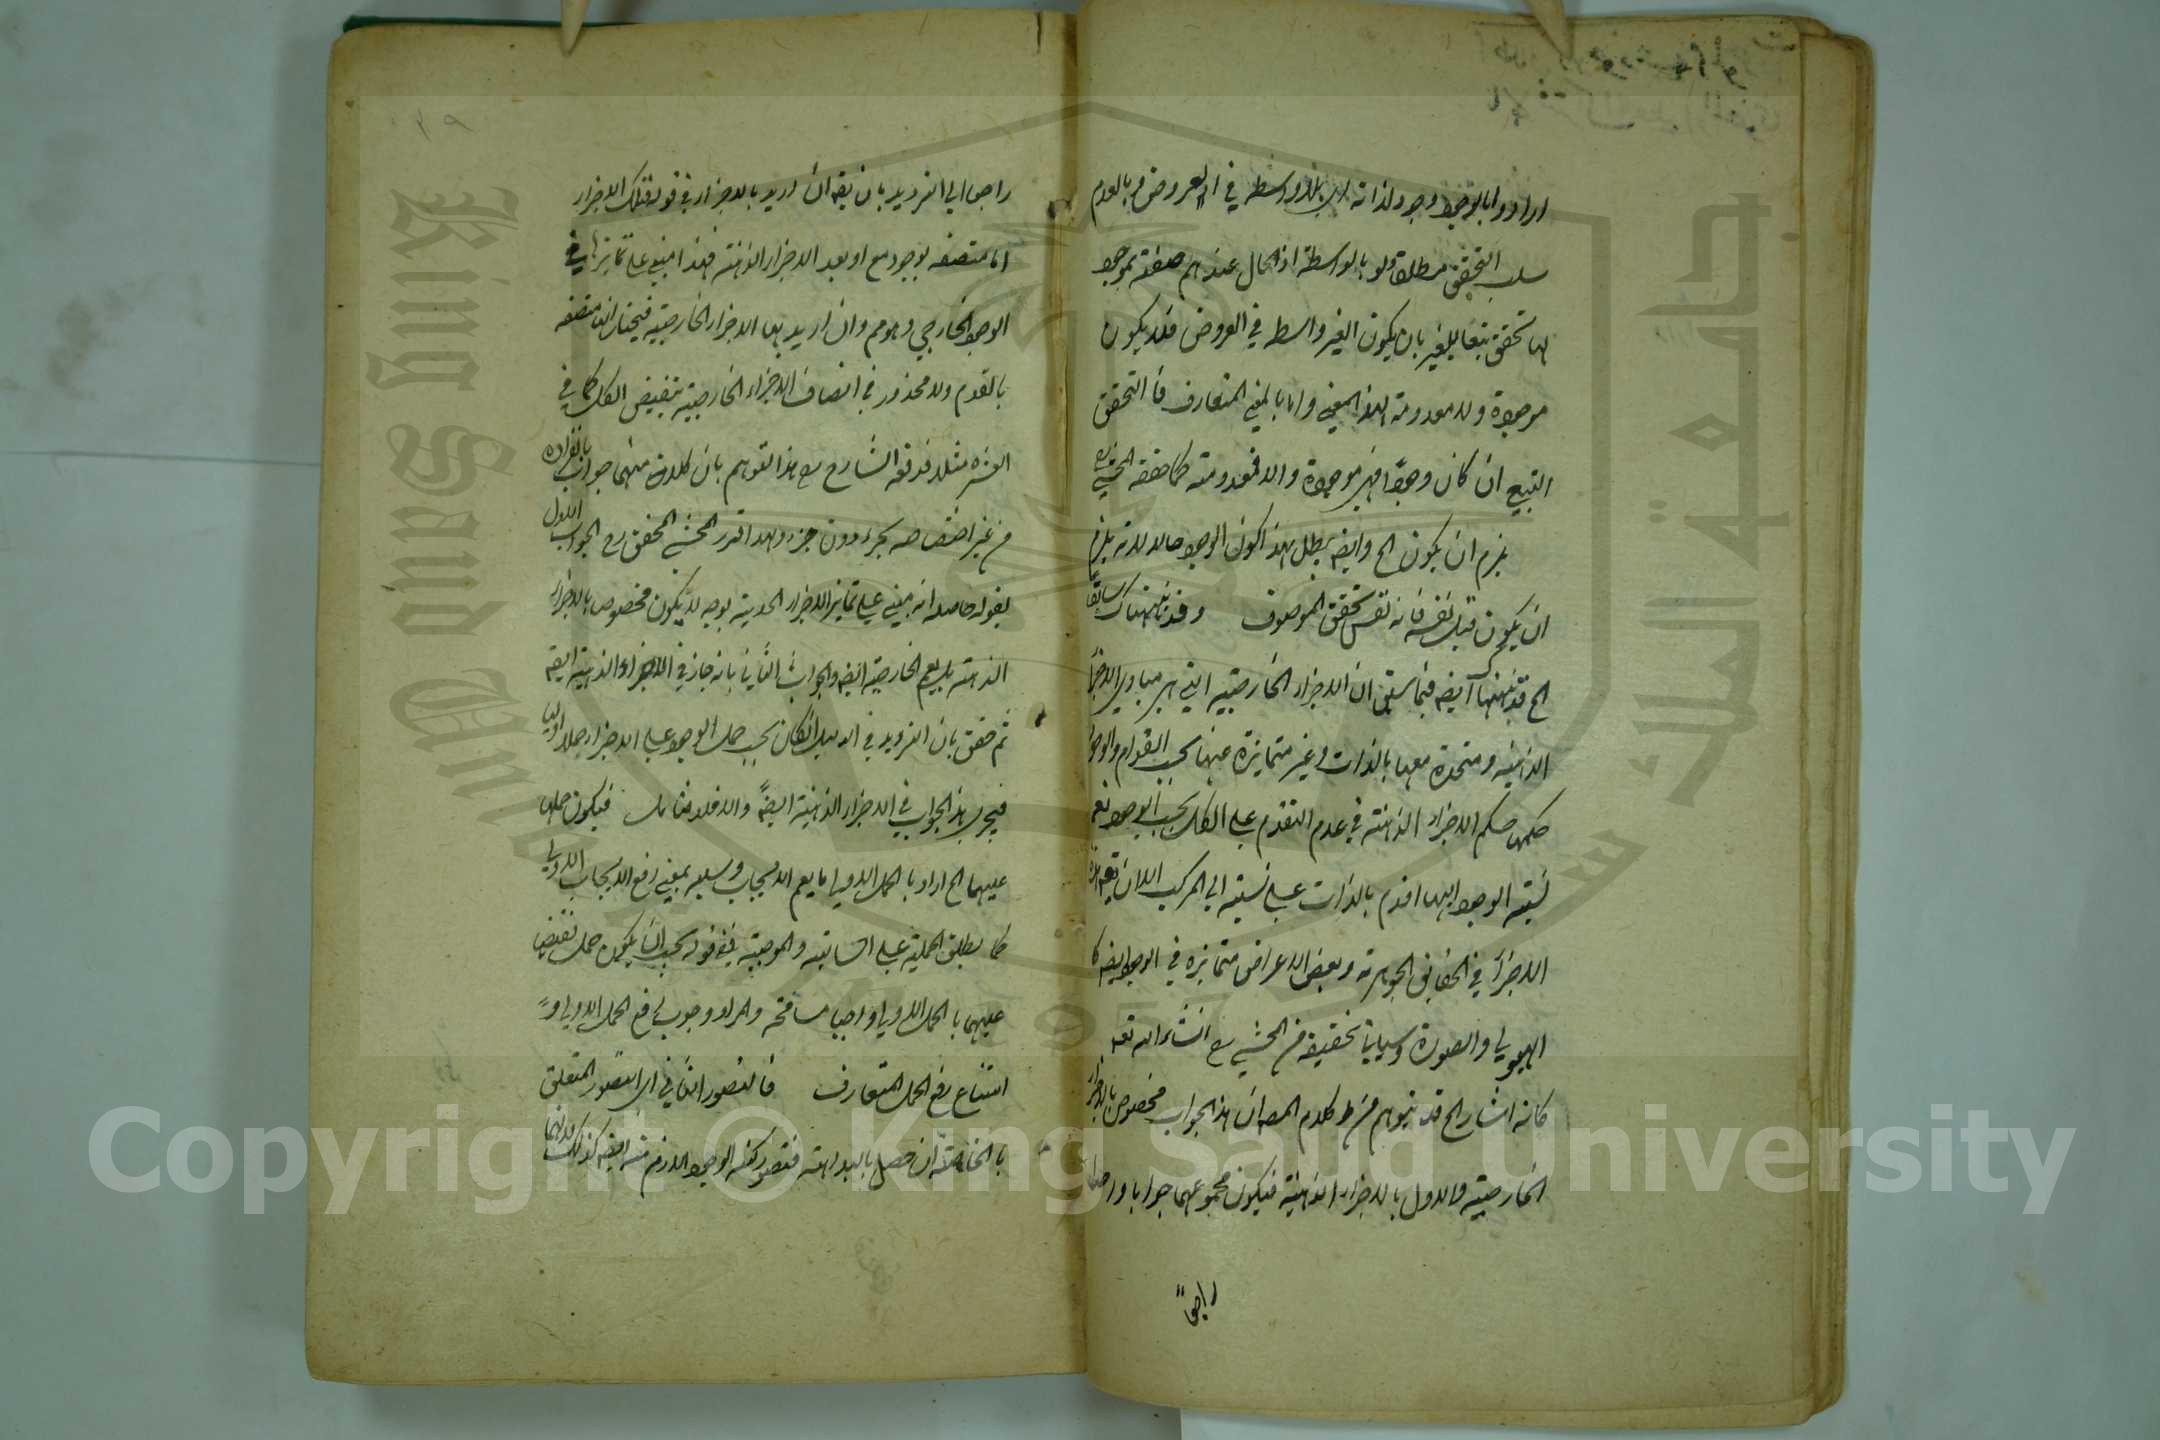 ارادوا بالوجود وجود لذاته اي بلا واسطة في العروض وبالعدم
سلب التحقق مطلقا ولو بالواسطة اذ الحال عندهم صفة لموجود
لها تحقق تبعا للغير بان يكون الغير واسطه في العروض فلا يكون
موجودة ولا معدومة بهذا المعنى واما بالمعنى المتعارف فالتحقق
التبعي ان كان وجودا فهي موجودة والا فمعدومة كما حققه المحشي
يلزم ان يكون الخ وايضه يبطل بهذا كون الوجود حالا لانه يلزم
ان يكون قبل نفسه فانه نفس تحقق الموصوف وقد نبهناك سابقا
الخ قد نبهنا ايضه فيما سبق ان الاجزاء الخارجية التي هي مبادي الاجزاء
الذهنية ومتحدة معها بالذات وغير متمايزة عنها بحسب القوام والوجود
حكمها حكم الاجزاء الذهنية في عدم التقدم على الكل بحسب الوجود نعم
نسبة الوجود اليها اقدم بالذات على نسبته الى المركب الا ان يقه
الاجزاء في الحقائق الجوهرية وبعض الاعراض متمايزه في الوجود ايضه كا
الهيولى والصورة وسياتي تحقيقه من المحشي رح انشاء الله تعه
كانه اشار الخ قد يتوهم من كلام المصه ان هذا الجواب مخصوص بالاجزاء
الخارجية والاول بالاجزاء الذهنية فيكون مجموعهما جوابا واحدا
راجعا
٣٩
راجعا الى الترديد بان يقه ان اريد بالاجزاء في قوله فتلك الاجزاء
اما متصفه بوجود مع او بعد الاجزاء الذهنية فهذا مبني على تمايزها في
الوجود الخارجي وهو مم وان اريد بها الاجزاء الخارجية فيختار انها متصفه
بالعدم ولا محذور في اتصاف الاجزاء الخارجية بنقيض الكل كما في
العشره مثلا فدفعه الشارح رح هذا التوهم بان كلا منهما جواب بانفراده
من غير اختصاصه بجزء دون جزء ولهذا قرر المحشي المحقق رح الجواب الاول
بقوله حاصله انه مبني على تمايز الاجزاء الحدية بوجه لا يكون مخصوصا بالاجزاء
الذهنية بل يعم الخارجية ايضه والجواب الثاني بانه جاز في الاجزاء الذهنية ايضه
ثم حقق بان الترديد في الدليل ان كان بحسب حمل الوجود على الاجزاء حملا اوليا
فيجري هذا الجواب في الاجزاء الذهنية ايضا والا فلا فتامل فيكون حملها
عليهما الخ اراد بالحمل الاولي ما يعم الايجاب وسلبه بمعنى رفع الايجاب الاولي
كما يطلق الحملية على السالبة والموجبة ففي قوله يجب ان يكون حمل نقيضها
عليهما بالحمل الاولي او واجبا مسامحة والمراد وجوب رفع الحمل الاولي و
امتناع رفع الحمل المتعارف فالتصور الثاني اي التصور المتعلق
بالخاصة ان حصل بالبداهة فتصور كنه الوجود اللازم منه ايضه كذلك
Copyright © King Saud University
King Saud University
جامعة الملك سعود
1957